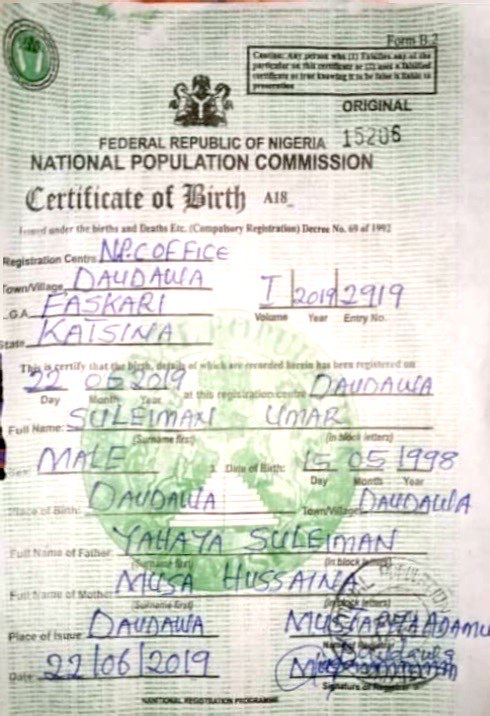 Form B.2
Caution: Any person who (1) Falsifies any of the
particular on this certificate or (2) uses a falsified
certificate as true knowing it to be false is liable to
prosecution
ORIGINAL
FEDERAL REPUBLIC OF NIGERIA 15206
NATIONAL POPULATION COMMISSION
Certificate of Birth A18_
Issued under the births and Deaths Etc. (Compulsory Registration) Decree No. 69 of 1992
Registration Centre NP.C OFFICE
Town/Village DAUDAWA
L.G.A. FASKARI I 2019 2919
Volume Year Entry No.
State KATSINA
This is certify that the birth, details of which are recorded herein has been registered on
22 06 2019 at this registration centre DAUDAWA
Day Month Year
Full Name: SULEIMAN UMAR
(Surname first) (in block letters)
Sex MALE 3. Date of Birth: 15 05 1998
Day Month Year
Place of Birth: DAUDAWA Town/Village DAUDAWA
Full Name of Father YAHAYA SULEIMAN
(Surname first) (in block letters)
Full Name of Mother MUSA HUSSAINA
(Surname first) (in block letters)
Place of Issue DAUDAWA MUSTAPHA ADAMU
Date 22/06/2019
Signature of Registrar
NATIONAL REGISTRATION PROGRAMME